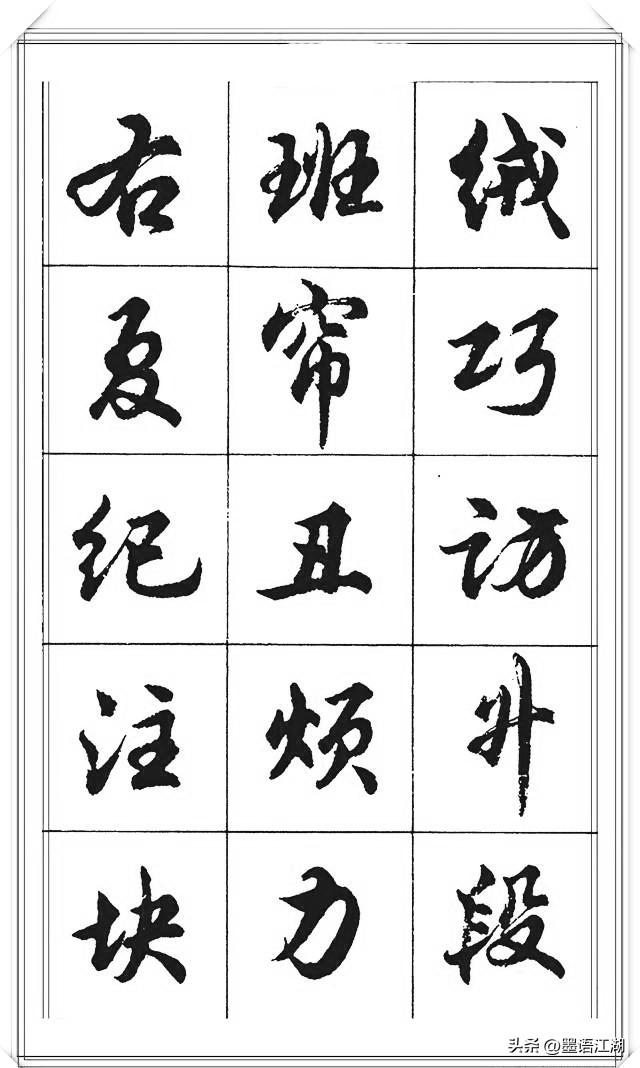 绒巧访外段
班帘丑烦力
右夏纪注块
头条 @墨语江湖